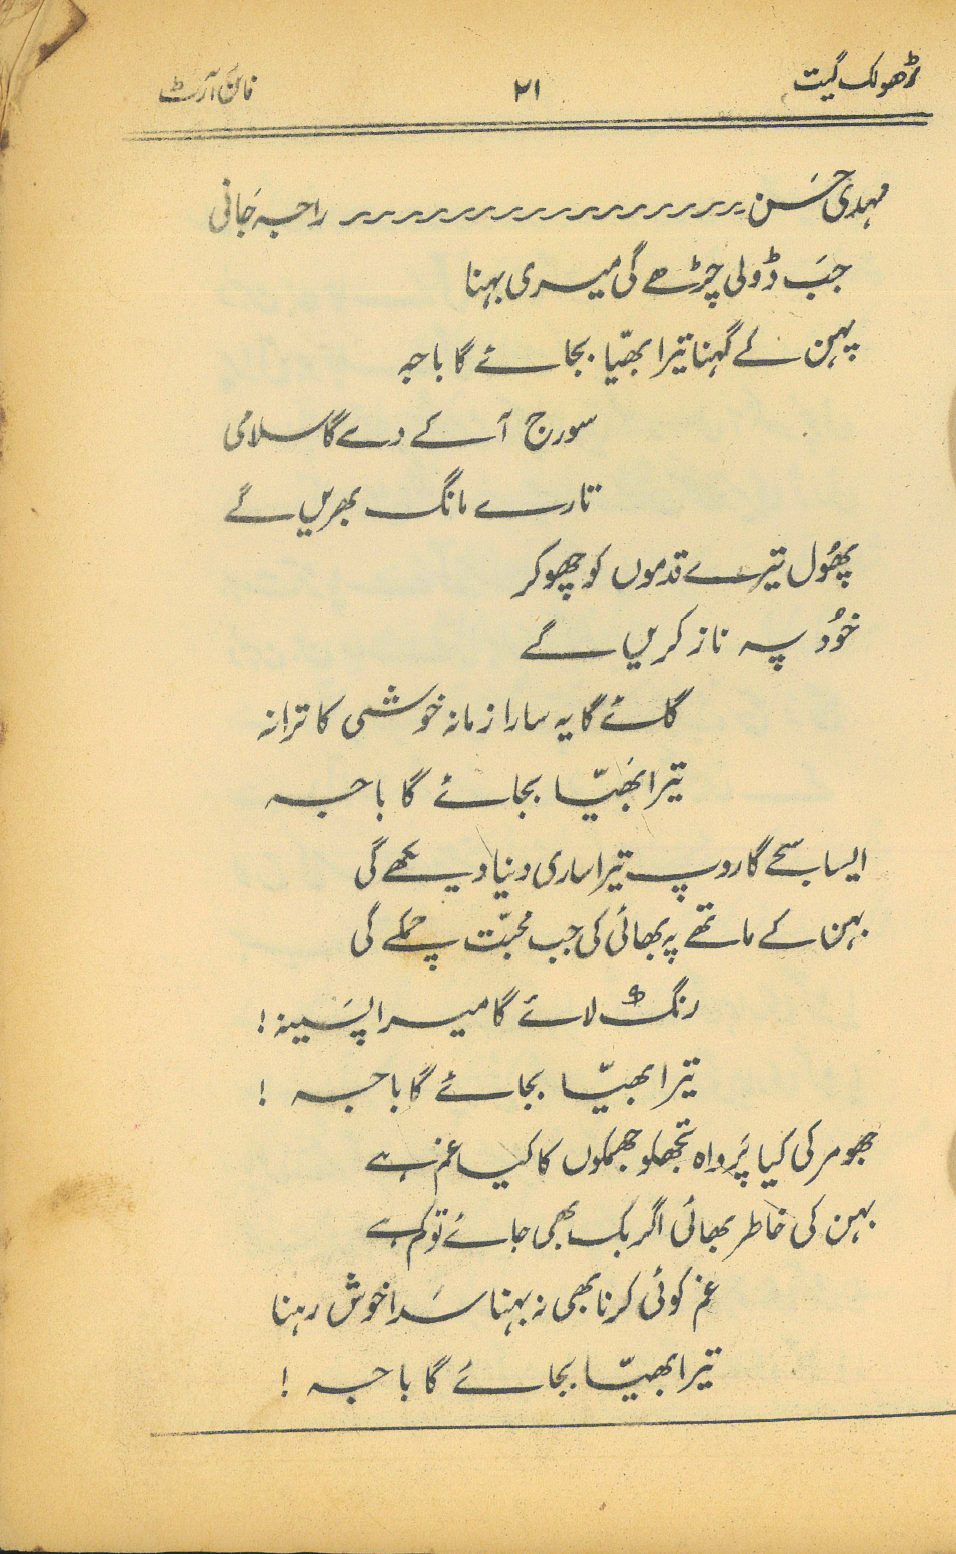 ڈھولک گیت ۲۱ فائن آرٹ
مہدی حسَن ـــــــــــــــــــــــــــــ راجہ جَانی
جبَ ڈولی چڑھے گی میری بہنا
پہن کے گہنا تیرا بھیّا بجائے گا باجہ
سورج آ کے دے گا سلامی
تارے مانگ بھریں گے
پھُول تیرے قدموں کو چھو کر
خُود پہ ناز کریں گے
گائے گا یہ سارا زمانہ خوشی کا ترانہ
تیرا بھَیّا بجائے گا باجہ
ایسا سجے گا روپ تیرا ساری دنیا دیکھے گی
بہنا کے ماتھے پہ بھائی کی جب محبّت چمکے گی
رنگ لائے گا میرا پسَینہ !
تیرا بھیّا بجائے گا باجہ !
جھومر کی کیا پَرواہ تجھکو جھمکوں کا کیا غم ہے
بہن کی خاطر بھائی اگر بک بھی جائے تو کم ہے
غم کوئی کرنا بھی نہ بہنا سَدا خوش رہنا
تیرا بھیّا بجائے گا باجہ !